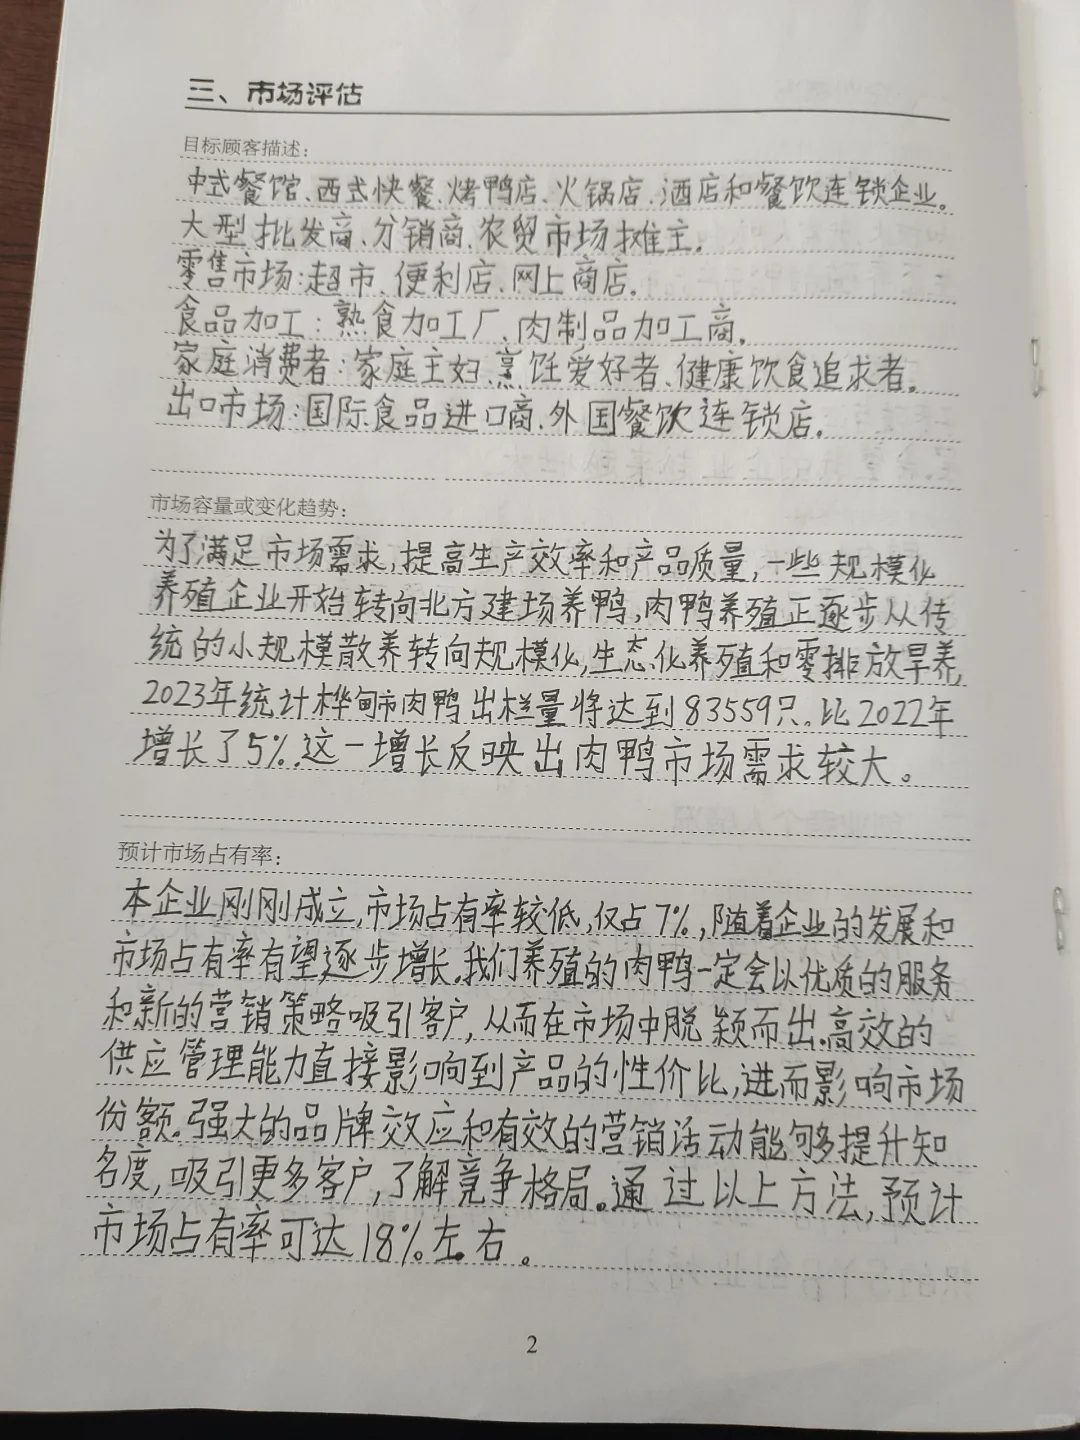 三、市场评估
目标顾客描述：
中式餐馆、西式快餐、烤鸭店、火锅店、酒店和餐饮连锁企业。
大型批发商、分销商、农贸市场摊主。
零售市场：超市、便利店、网上商店。
食品加工：熟食加工厂、肉制品加工商。
家庭消费者：家庭主妇、烹饪爱好者、健康饮食追求者。
出口市场：国际食品进口商、外国餐饮连锁店。
市场容量或变化趋势：
为了满足市场需求，提高生产效率和产品质量，一些规模化
养殖企业开始转向北方建场养鸭，肉鸭养殖正逐步从传
统的小规模散养转向规模化，生态化养殖和零排放旱养，
2023年统计桦甸市肉鸭出栏量将达到83559只。比2022年
增长了5%。这一增长反映出肉鸭市场需求较大。
预计市场占有率：
本企业刚刚成立，市场占有率较低，仅占7%，随着企业的发展和
市场占有率有望逐步增长。我们养殖的肉鸭一定会以优质的服务
和新的营销策略吸引客户，从而在市场中脱颖而出。高效的
供应管理能力直接影响到产品的性价比，进而影响市场
份额。强大的品牌效应和有效的营销活动能够提升知
名度，吸引更多客户，了解竞争格局。通过以上方法，预计
市场占有率可达18%左右。
2